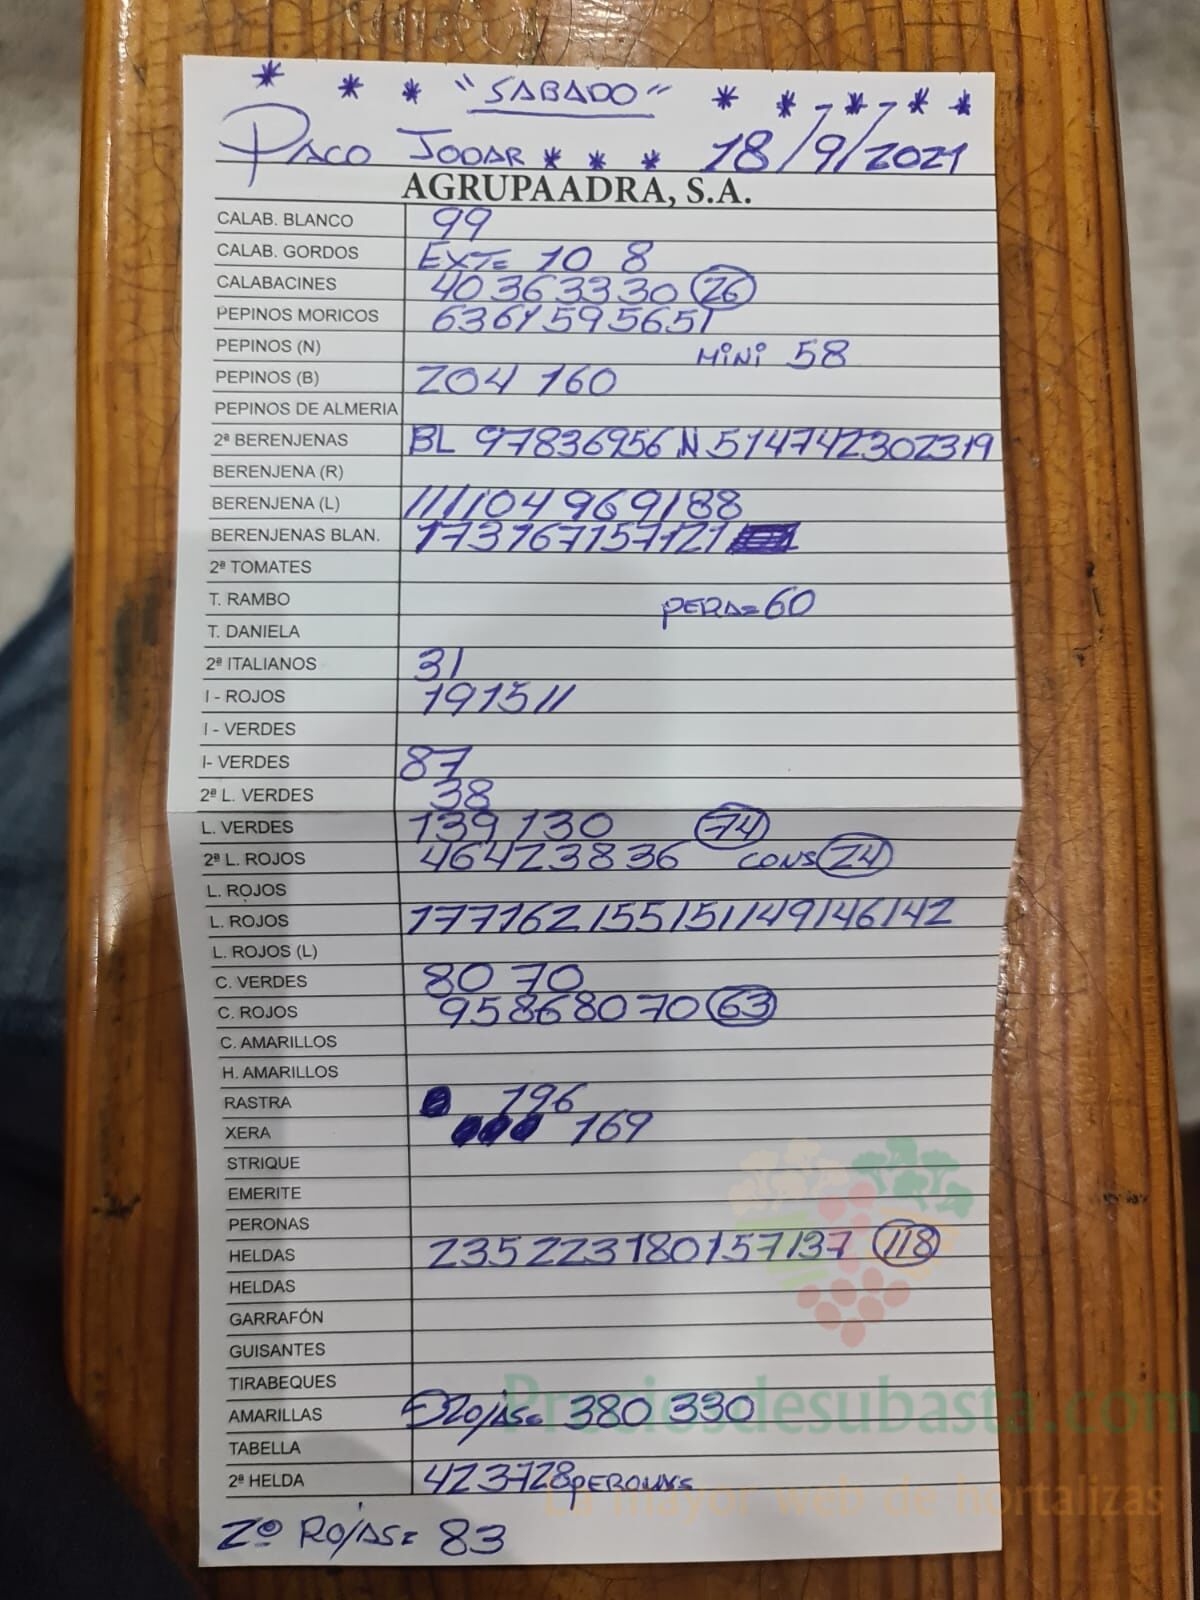 * * * "SABADO" * * * * *
PACO JODAR * * * 18/9/2021
AGRUPAADRA, S.A.
CALAB. BLANCO 99
CALAB. GORDOS EXT= 10 8
CALABACINES 40 36 33 30 26
PEPINOS MORICOS 63 61 59 56 51
PEPINOS (N) MiNi 58
PEPINOS (B) 204 160
PEPINOS DE ALMERIA
2ª BERENJENAS BL 97 83 69 56 N 51 47 42 30 23 19
BERENJENA (R)
BERENJENA (L) 111 104 96 91 88
BERENJENAS BLAN. 173 167 157 121
2ª TOMATES
T. RAMBO PERA= 60
T. DANIELA
2ª ITALIANOS 31
I - ROJOS 19 15 11
I - VERDES
I- VERDES 87
2ª L. VERDES 38
L. VERDES 139 130 74
2ª L. ROJOS 46 42 38 36 CONS 24
L. ROJOS
L. ROJOS 177 162 155 151 149 146 142
L. ROJOS (L)
C. VERDES 80 70
C. ROJOS 95 86 80 70 63
C. AMARILLOS
H. AMARILLOS
RASTRA 196
XERA 169
STRIQUE
EMERITE
PERONAS
HELDAS 235 223 180 157 137 118
HELDAS
GARRAFÓN
GUISANTES
TIRABEQUES
AMARILLAS ROJAS= 380 330
TABELLA
2ª HELDA 42 37 28 PERONAS
2º ROJAS= 83
Preciosdesubasta.com
La mayor web de hortalizas